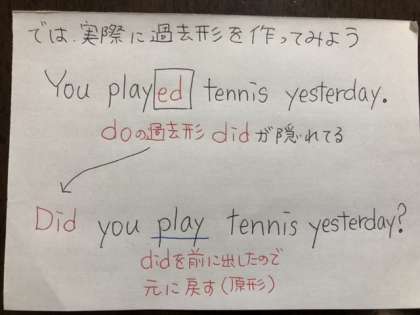 では、実際に過去形を作ってみよう
You played tennis yesterday.
doの過去形 didが隠れてる
Did you play tennis yesterday?
didを前に出したので
元に戻す(原形)